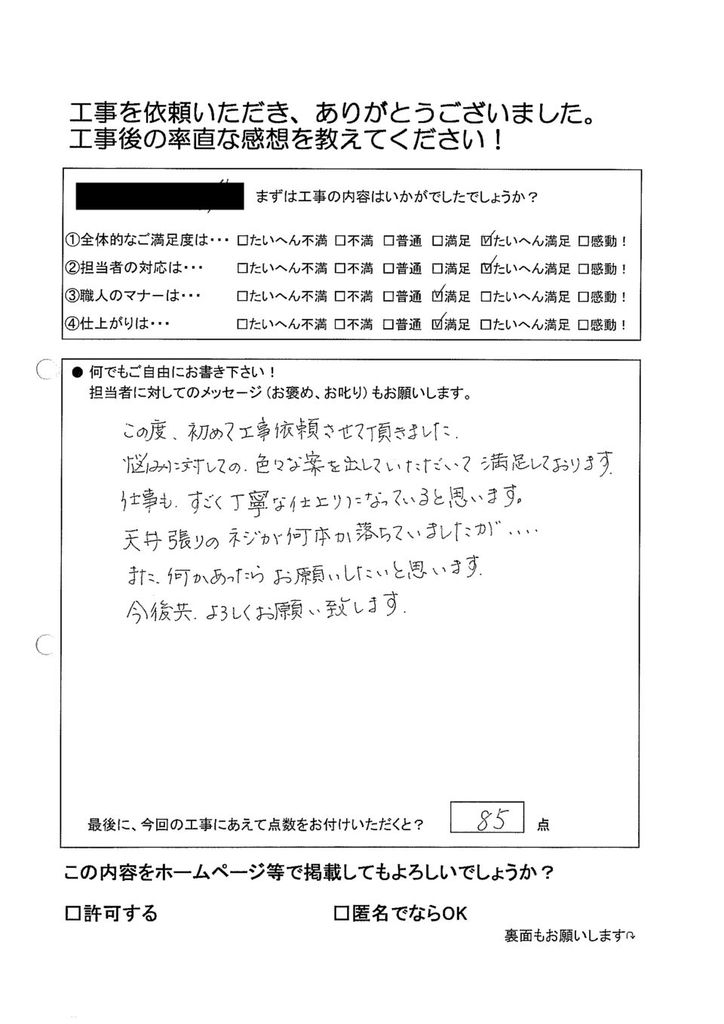 工事を依頼いただき、ありがとうございました。
工事後の率直な感想を教えてください！
まずは工事の内容はいかがでしたでしょうか？
①全体的なご満足度は・・・ □たいへん不満 □不満 □普通 □満足 ☑たいへん満足 □感動！
②担当者の対応は・・・ □たいへん不満 □不満 □普通 □満足 ☑たいへん満足 □感動！
③職人のマナーは・・・ □たいへん不満 □不満 □普通 ☑満足 □たいへん満足 □感動！
④仕上がりは・・・ □たいへん不満 □不満 □普通 ☑満足 □たいへん満足 □感動！
● 何でもご自由にお書き下さい！
担当者に対してのメッセージ（お褒め、お叱り）もお願いします。
この度、初めて工事依頼させて頂きました.
悩みに対しての、色々な案を出していただいて 満足しております.
仕事も、すごく丁寧な仕上りになっていると思います。
天井張りのネジが何本か落ちていましたが・・・・
また、何かあったら お願いしたいと思います.
今後共、よろしくお願い致します.
最後に、今回の工事にあえて点数をお付けいただくと？ 85 点
この内容をホームページ等で掲載してもよろしいでしょうか？
□許可する □匿名でならOK
裏面もお願いします↷